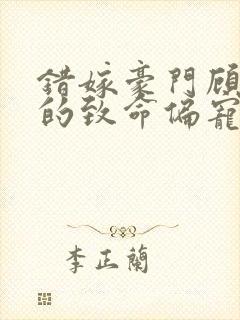 錯嫁豪門顧
的致命偏寵
李正蘭